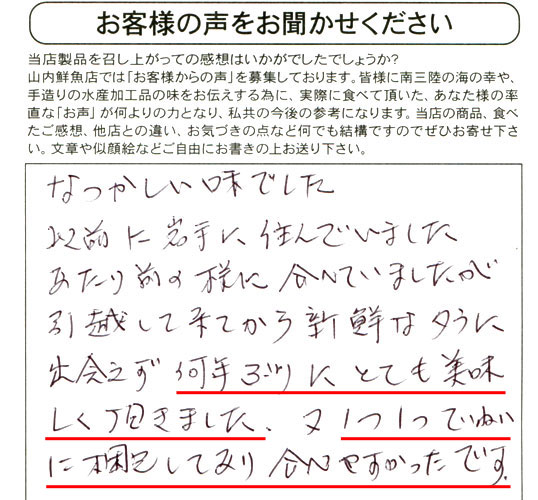 お客様の声をお聞かせください
当店製品を召し上がっての感想はいかがでしたでしょうか?
山内鮮魚店では「お客様からの声」を募集しております。皆様に南三陸の海の幸や、
手造りの水産加工品の味をお伝えする為に、実際に食べて頂いた、あなた様の率
直な「お声」が何よりの力となり、私共の今後の参考になります。当店の商品、食べ
たご感想、他店との違い、お気づきの点など何でも結構ですのでぜひお寄せ下さ
い。文章や似顔絵などご自由にお書きの上お送り下さい。
なつかしい味でした
以前に岩手に住んでいました
あたり前の様に食べていましたが
引越して来てから新鮮なタラに
出会えず何年ぶりにとても美味
しく頂きました、又1つ1つていねい
に梱包してあり食べやすかったです。